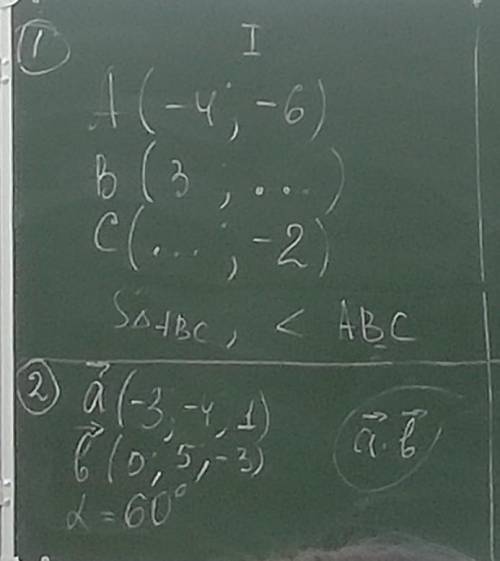 ① I
A(-4; -6)
B(3; ...)
C(...; -2)
S△ABC, < ABC
② a⃗(-3, -4, 1)
b⃗(0; 5, -3) a⃗·b⃗
α = 60°